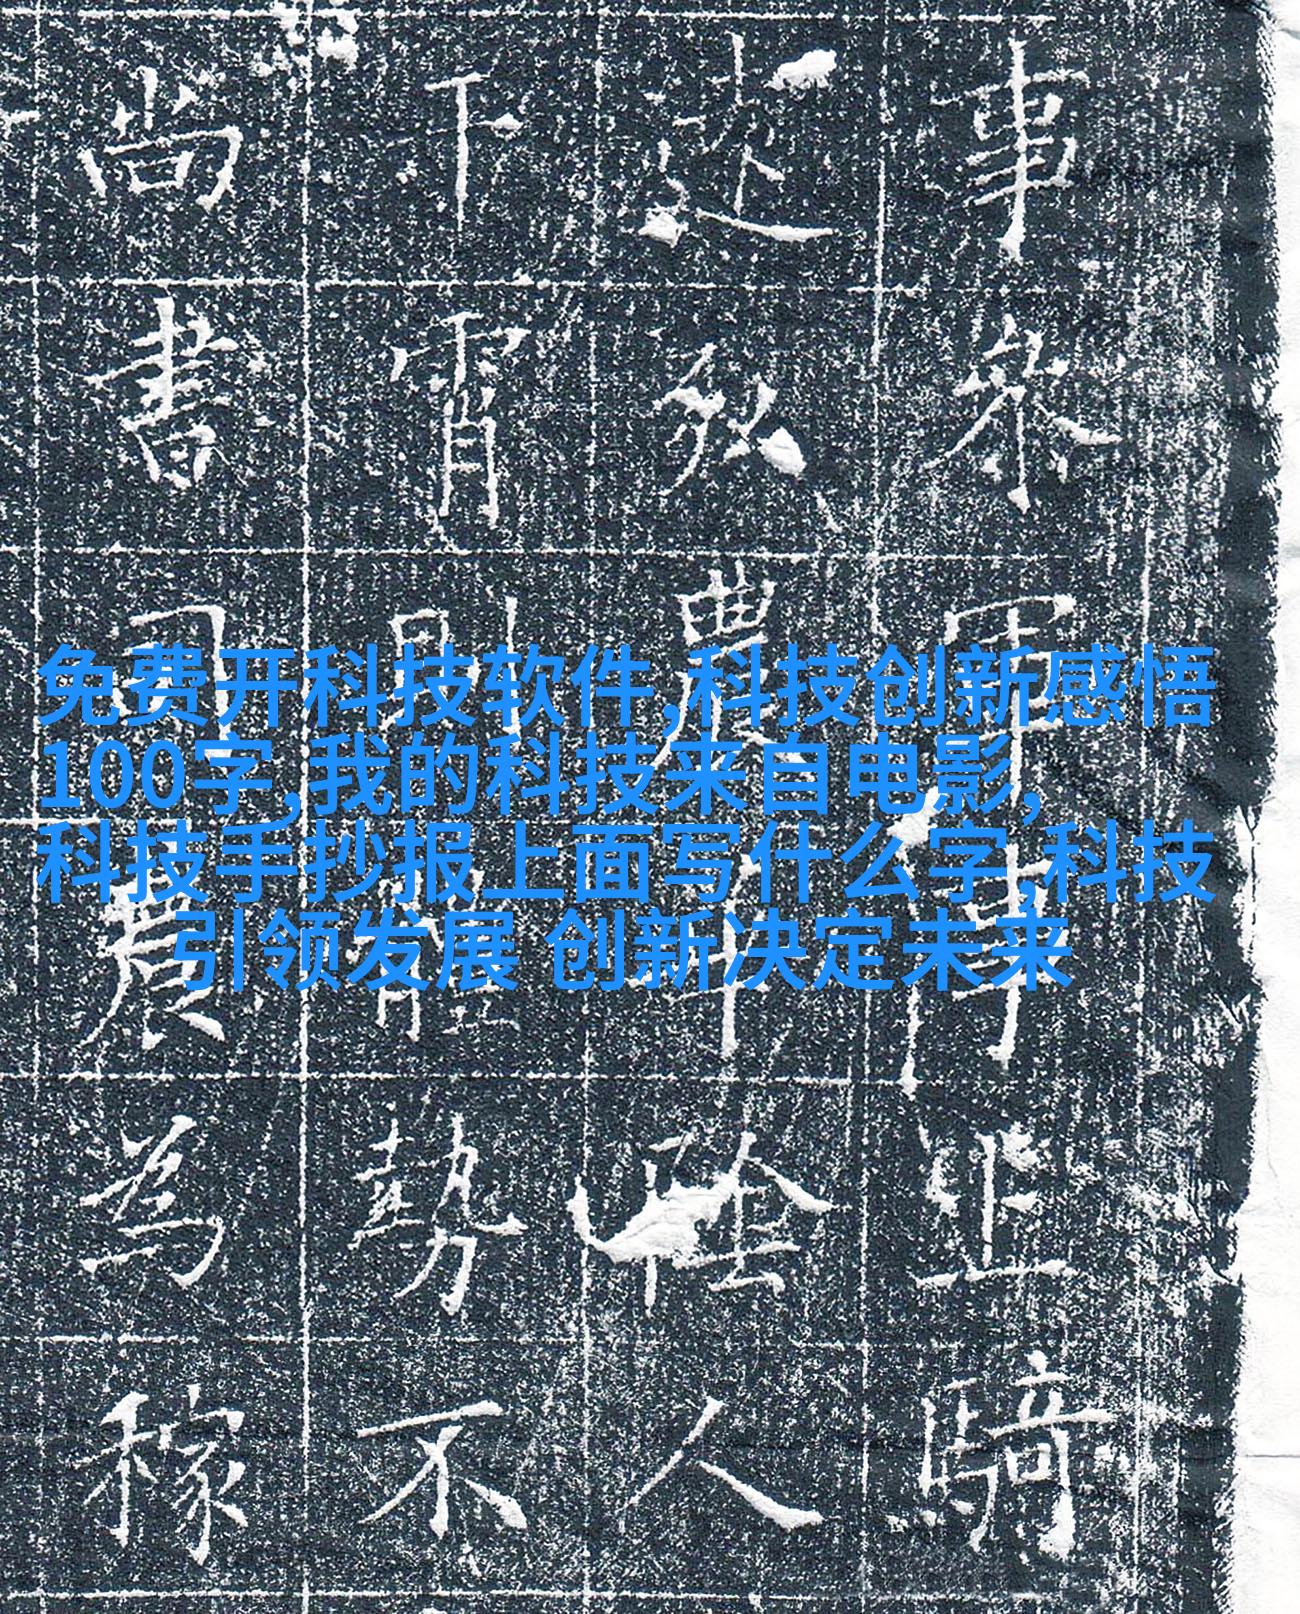 免费开科技软件,科技创新感悟
100字,我的科技来自电影,
科技手抄报上面写什么字,科技
引领发展 创新决定未来
事參軍事上騎
弘農華陰人
下霄則體勢不
尚書司農為稼